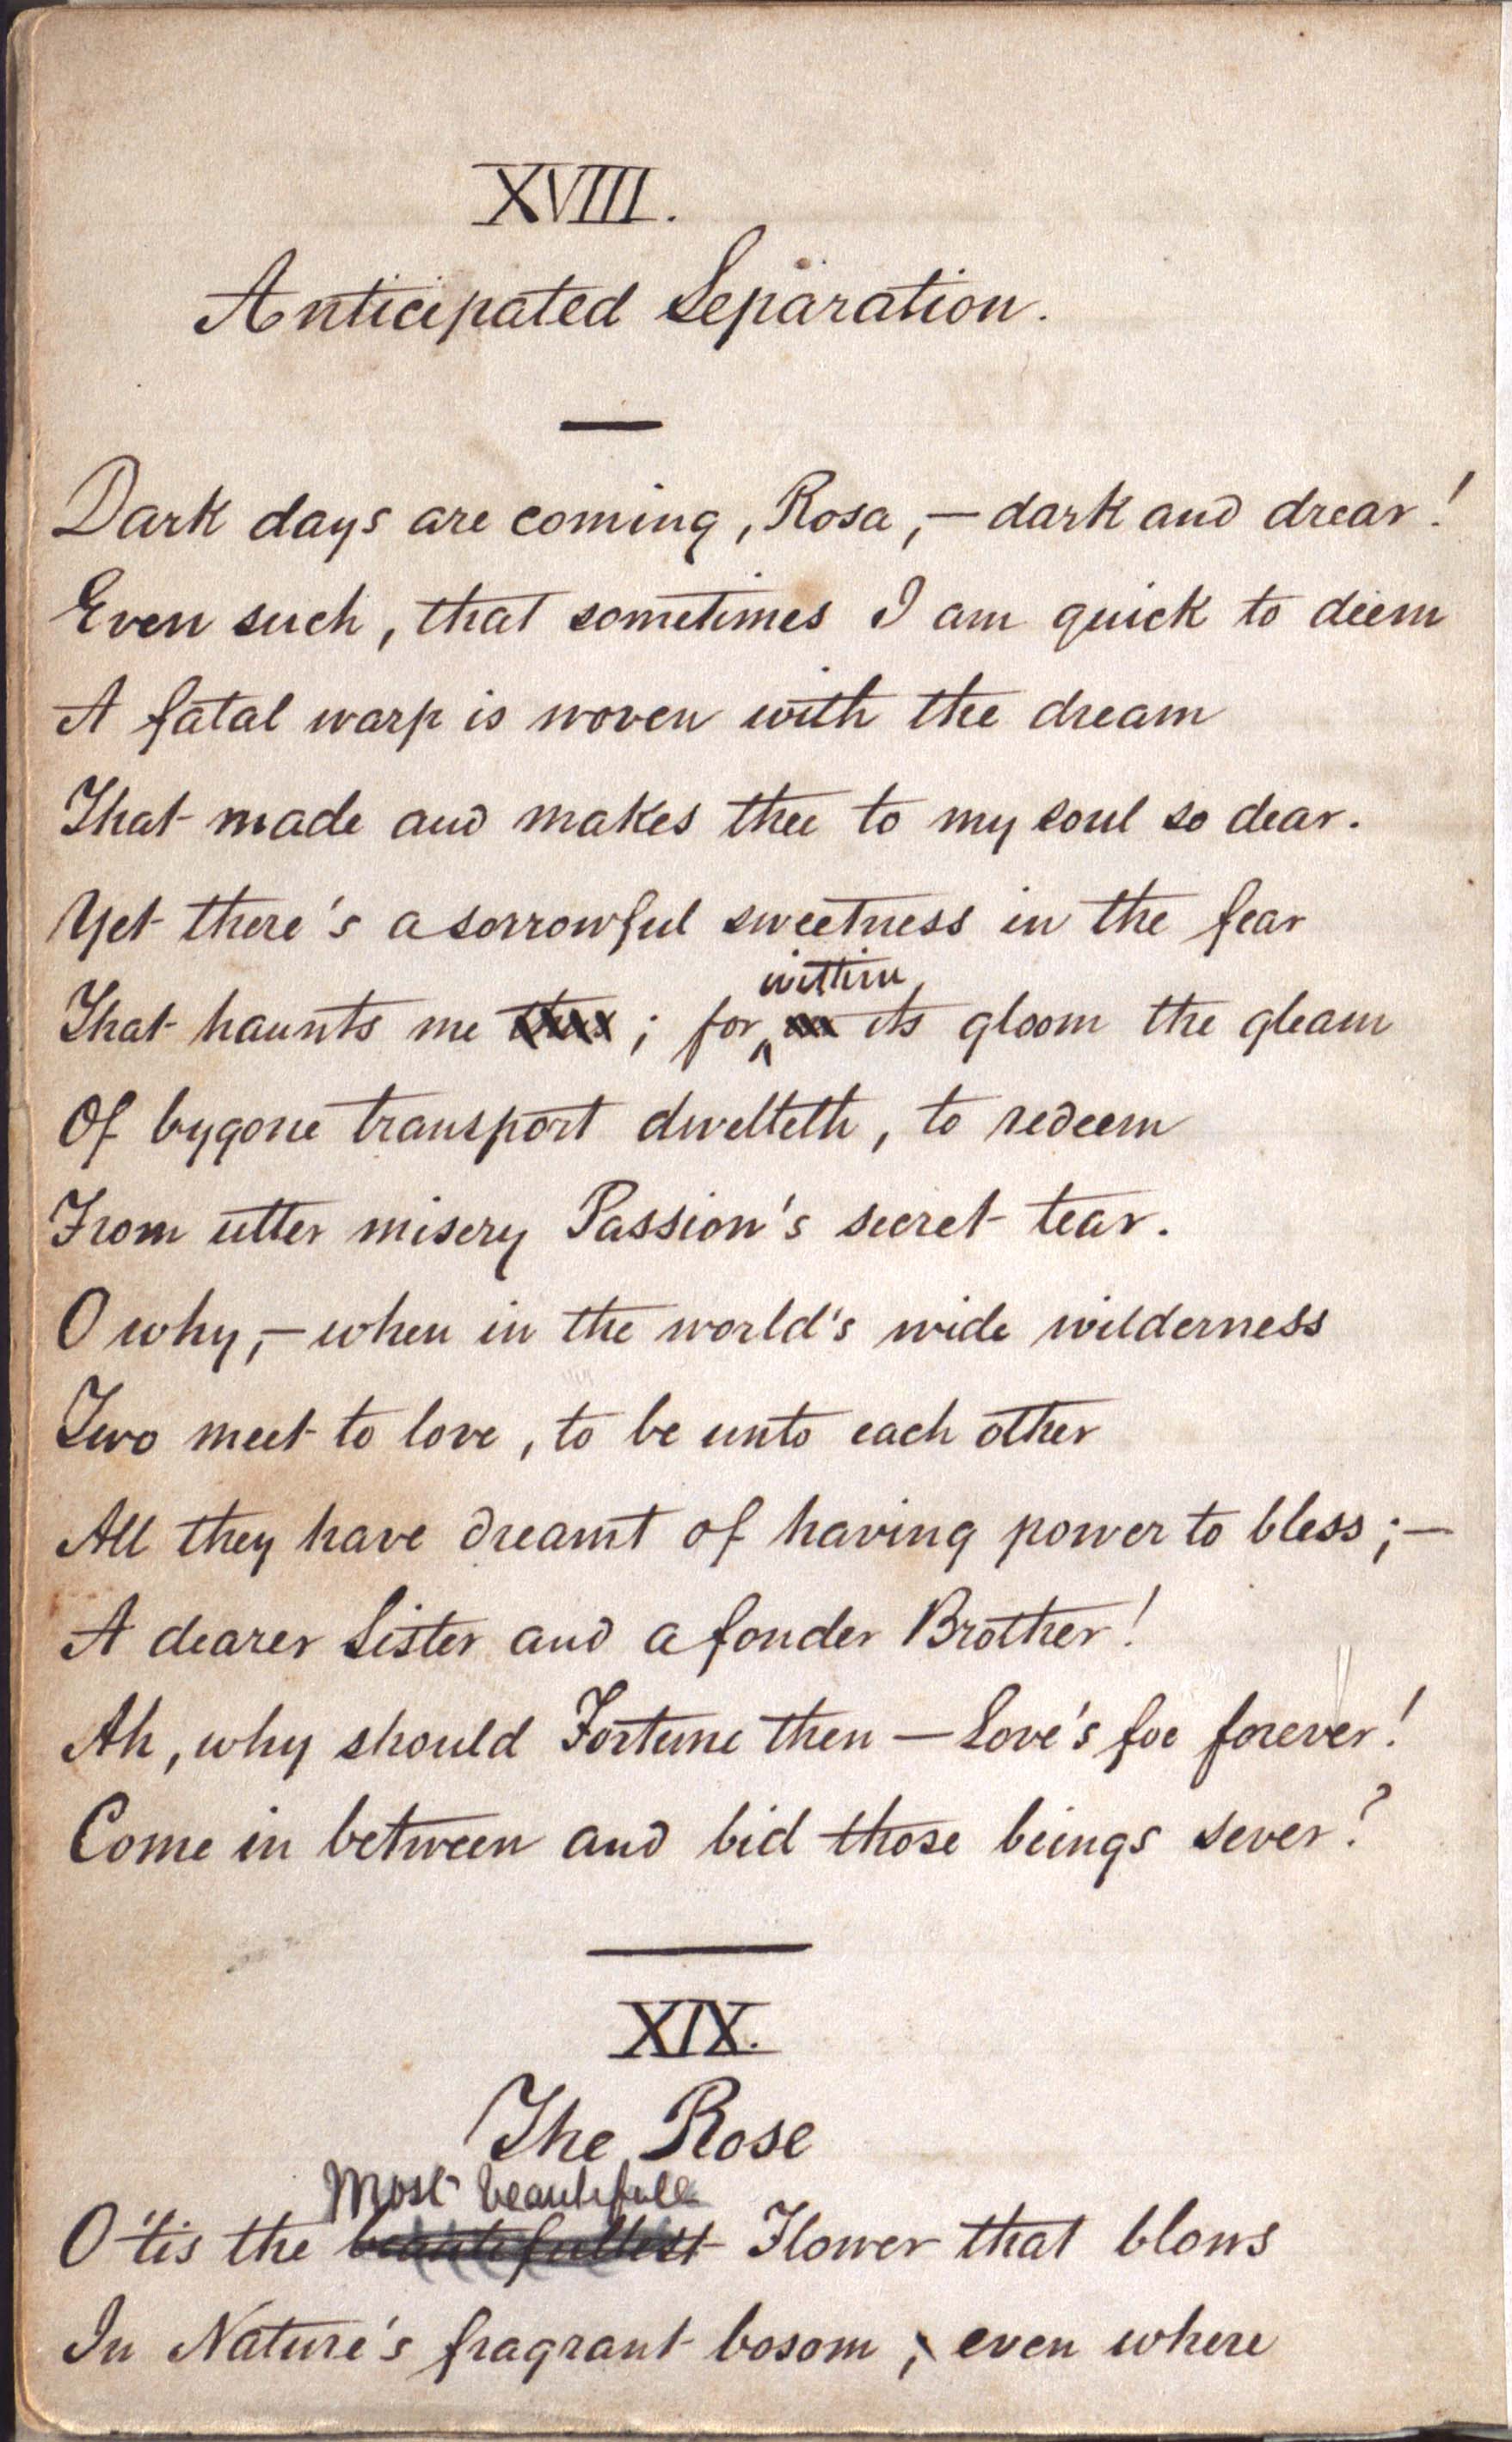 XVIII.
Anticipated Separation.
Dark days are coming, Rosa,— dark and drear!
Even such, that sometimes I am quick to deem
A fatal warp is woven with the dream
That made and makes thee to my soul so dear.
Yet there's a sorrowful sweetness in the fear
within
That haunts me ; for its gloom the gleam
Of bygone transport dwelleth, to redeem
From utter misery Passion's secret tear.
O why,— when in the world's wide wilderness
Two meet to love, to be unto each other
All they have dreamt of having power to bless;—
A dearer Sister and a fonder Brother!
Ah, why should Fortune then — Love's foe forever!
Come in between and bid those beings sever?
XIX.
The Rose
Most beautifull
O 'tis the beautifullest Flower that blows
In Nature's fragrant bosom, even where